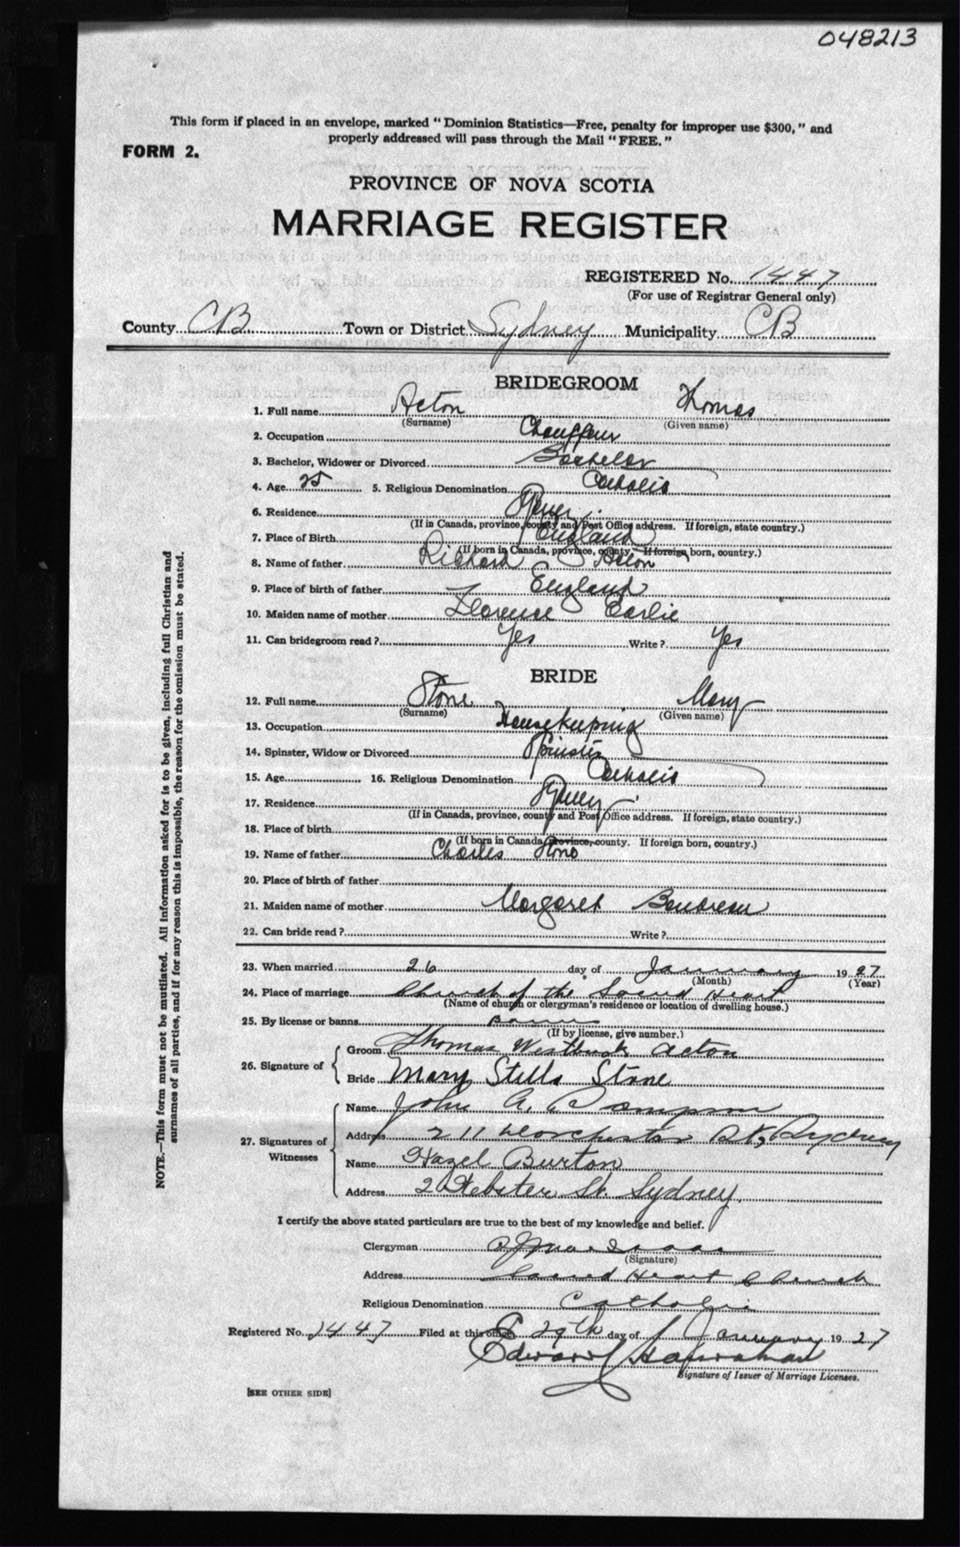 048213
This form if placed in an envelope, marked "Dominion Statistics—Free, penalty for improper use $300," and
properly addressed will pass through the Mail "FREE."
FORM 2.
PROVINCE OF NOVA SCOTIA
MARRIAGE REGISTER
REGISTERED No. 1447
(For use of Registrar General only)
County CB Town or District Sydney Municipality CB
BRIDEGROOM
1. Full name Acton Thomas
(Surname) (Given name)
2. Occupation Chauffeur
3. Bachelor, Widower or Divorced Bachelor
4. Age 25 5. Religious Denomination Catholic
6. Residence Sydney
(If in Canada, province, county and Post Office address. If foreign, state country.)
7. Place of Birth England
(If born in Canada, province, county. If foreign born, country.)
8. Name of father Richard Acton
9. Place of birth of father England
10. Maiden name of mother Florence Earlie
11. Can bridegroom read? Yes Write? Yes
BRIDE
12. Full name Stone Mary
(Surname) (Given name)
13. Occupation Housekeeping
14. Spinster, Widow or Divorced Spinster
15. Age 16. Religious Denomination Catholic
17. Residence Sydney
(If in Canada, province, county and Post Office address. If foreign, state country.)
18. Place of birth
(If born in Canada, province, county. If foreign born, country.)
19. Name of father Charles Stone
20. Place of birth of father
21. Maiden name of mother Margaret Boudreau
22. Can bride read? Write?
23. When married 26 day of January 1927
(Month) (Year)
24. Place of marriage Church of the Sacred Heart
(Name of church or clergyman's residence or location of dwelling house.)
25. By license or banns banns
(If by license, give number.)
26. Signature of
Groom Thomas Acton
Bride Mary Stella Stone
27. Signatures of Witnesses
Name John A.
Address 211 Dorchester St, Sydney
Name Hazel Burton
Address 2 Webster St. Sydney.
I certify the above stated particulars are true to the best of my knowledge and belief.
Clergyman
(Signature)
Address Sacred Heart Church
Religious Denomination Catholic
Registered No. 1447 Filed at this office 29th day of January 1927
Edward
Signature of Issuer of Marriage Licenses.
[SEE OTHER SIDE]
NOTE.—This form must not be mutilated. All information asked for is to be given, including full Christian and
surnames of all parties, and if for any reason this is impossible, the reason for the omission must be stated.